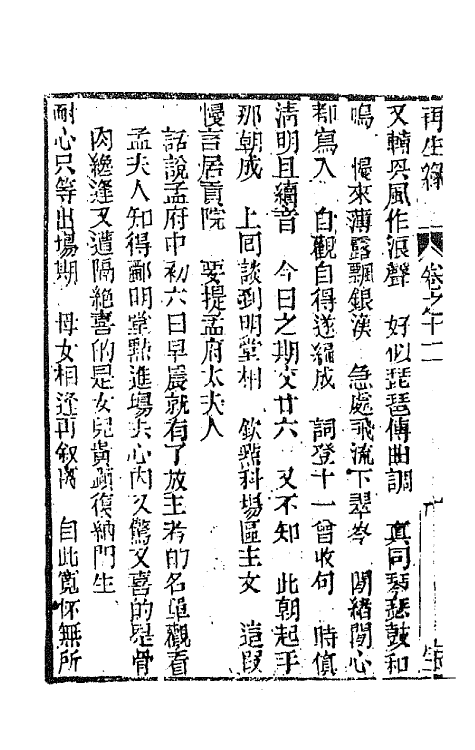 再生緣 卷之十二
又轉與風作浪聲 好似琵琶傳曲調 真同琴瑟鼓和
鳴 慢來薄露飄銀漢 急處飛流下翠岑 閒緒閒心
都寫入 自觀自得遂編成 詞登十一曾收句 時值
清明且續音 今日之期交廿六 又不知 此朝起手
那朝成 上回談到明堂相 欽點科場區主文 這段
慢言居貢院 要提孟府太夫人
話說孟府中初六日早晨就有了放主考的名單觀看
孟夫人知得酈明堂點進場去心內又驚又喜的是骨
肉纔逢又遭隔絕喜的是女兒貴顯復納門生
耐心只等出場期 母女相逢再叙 自此寬懷無所